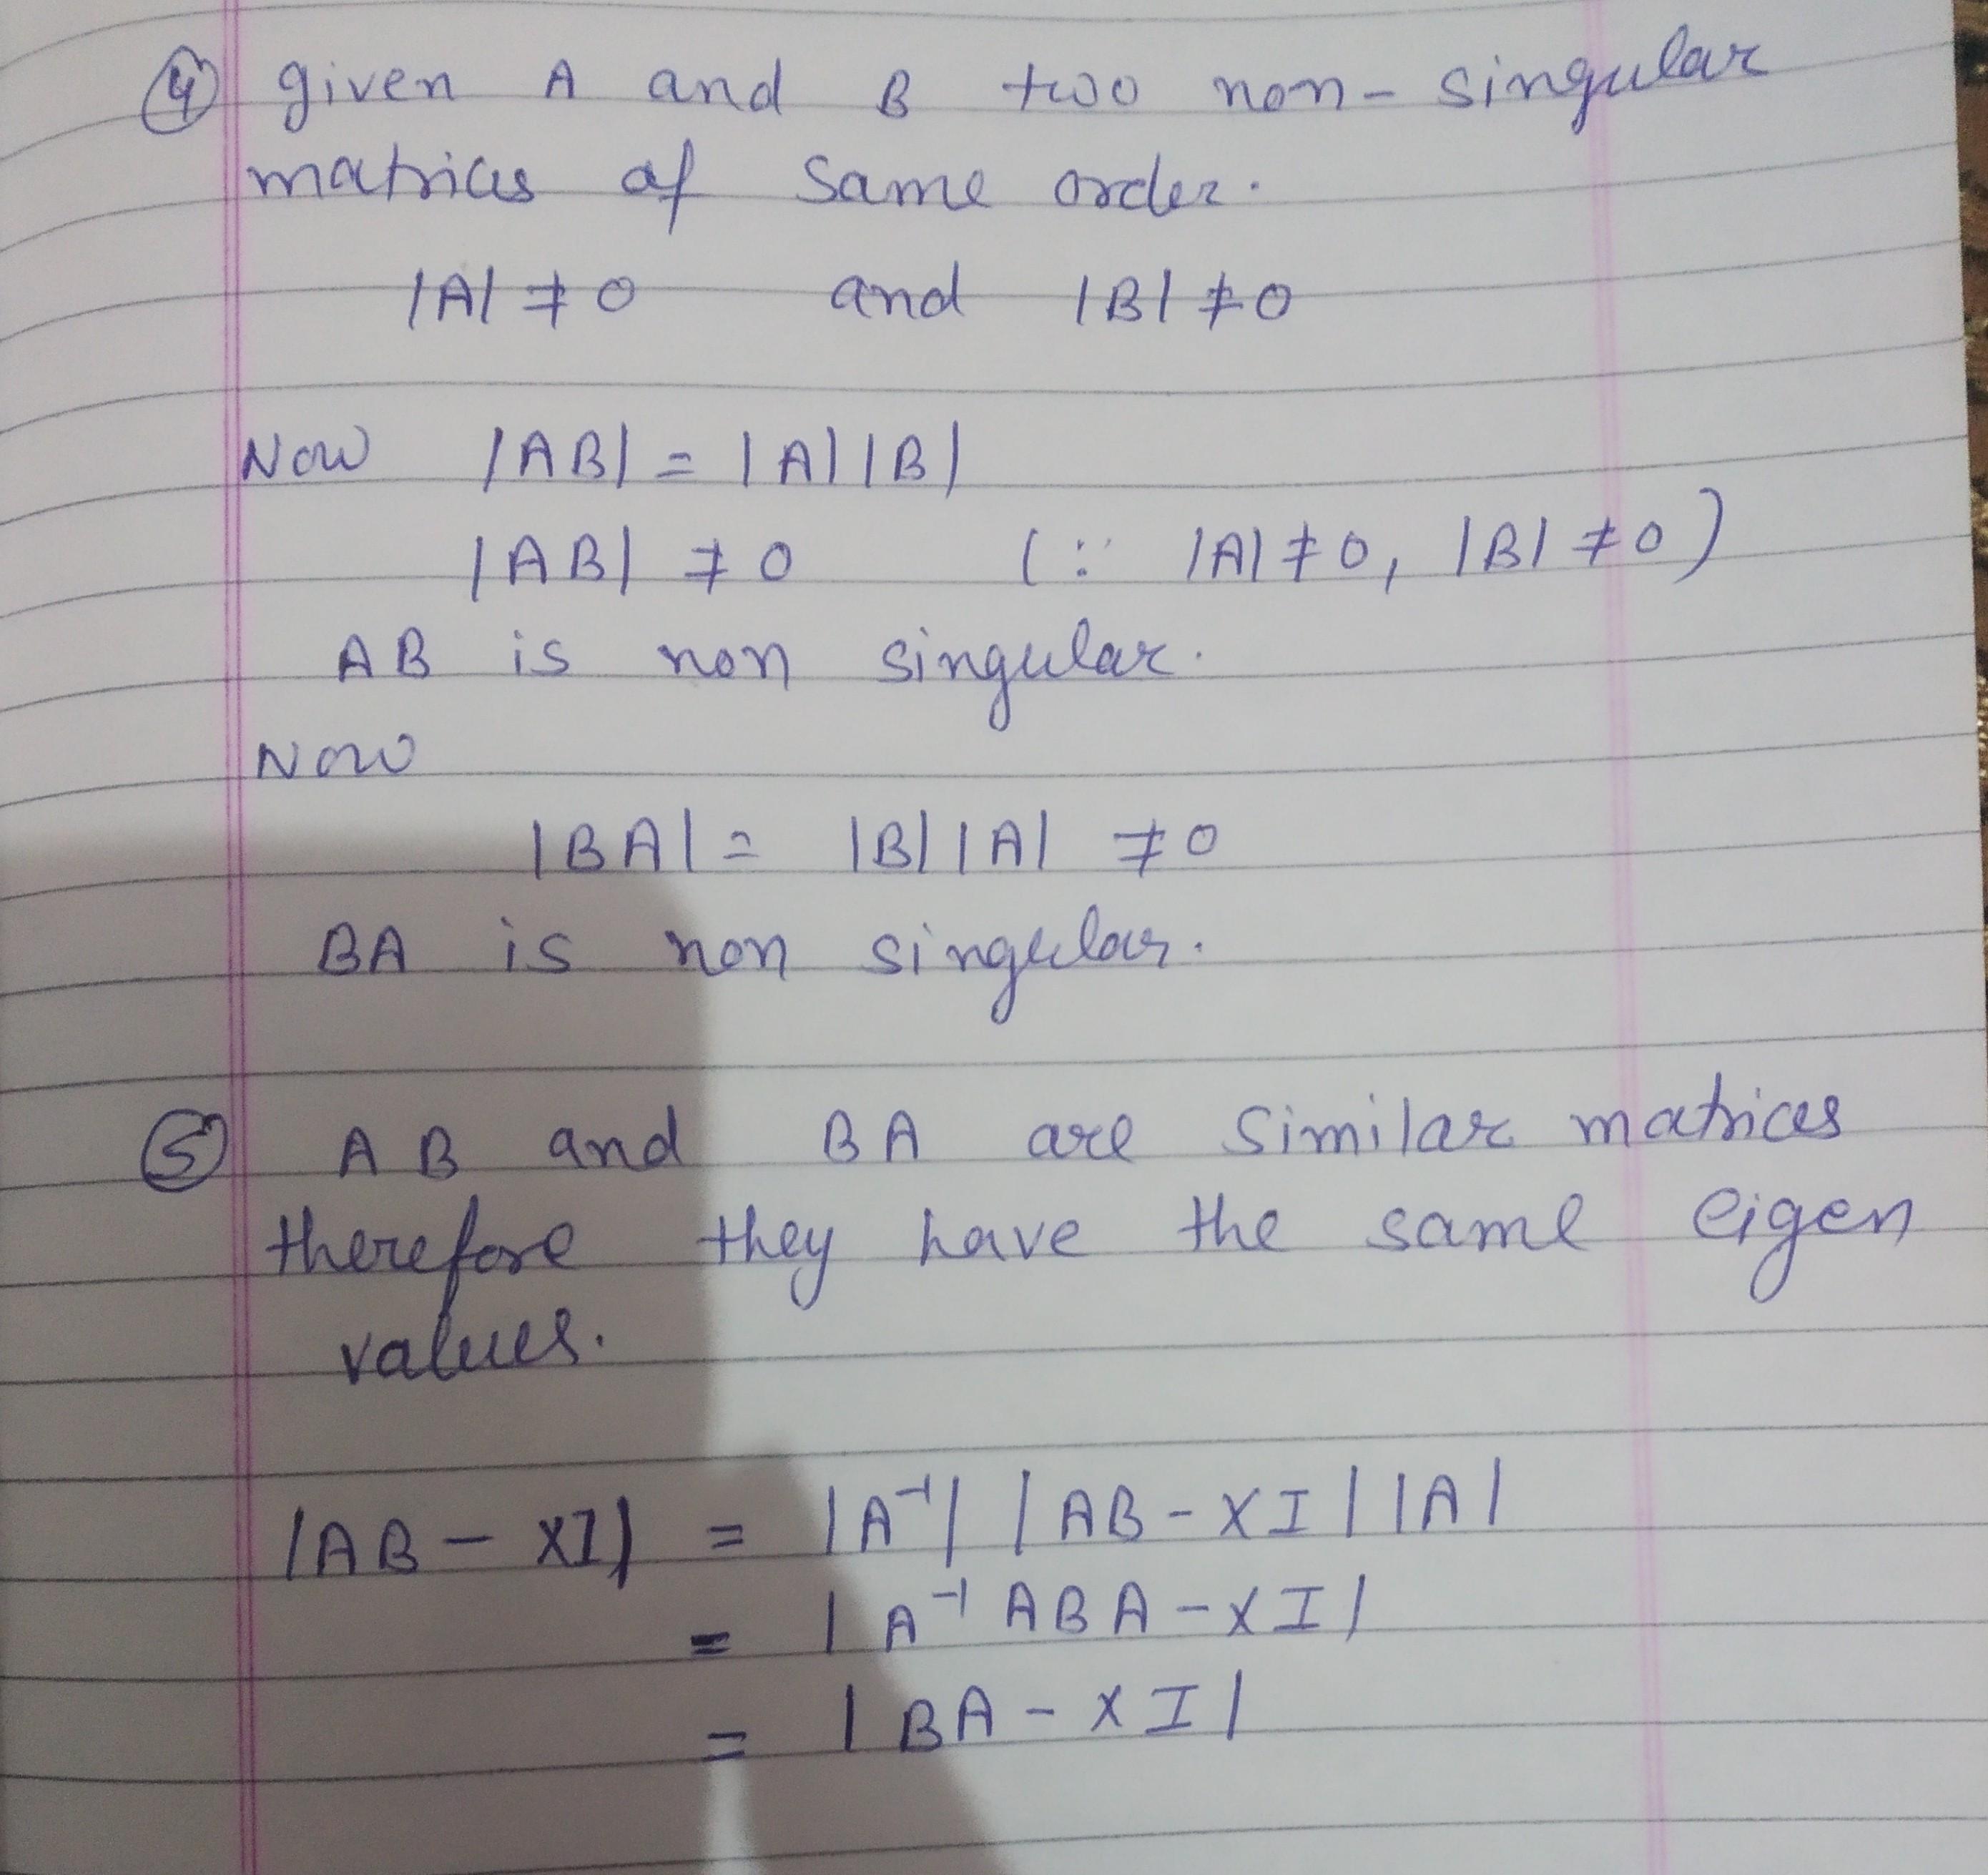 ④ given A and B two non-singular
matrices of same order.
|A| ≠ 0 and |B| ≠ 0
Now |AB| = |A||B|
|AB| ≠ 0 (∵ |A| ≠ 0, |B| ≠ 0)
AB is non singular.
Now
|BA| = |B||A| ≠ 0
BA is non singular.
⑤ AB and BA are similar matrices
therefore they have the same eigen
values.
|AB - XI| = |A⁻¹| |AB - XI| |A|
= |A⁻¹ ABA - XI|
= |BA - XI|